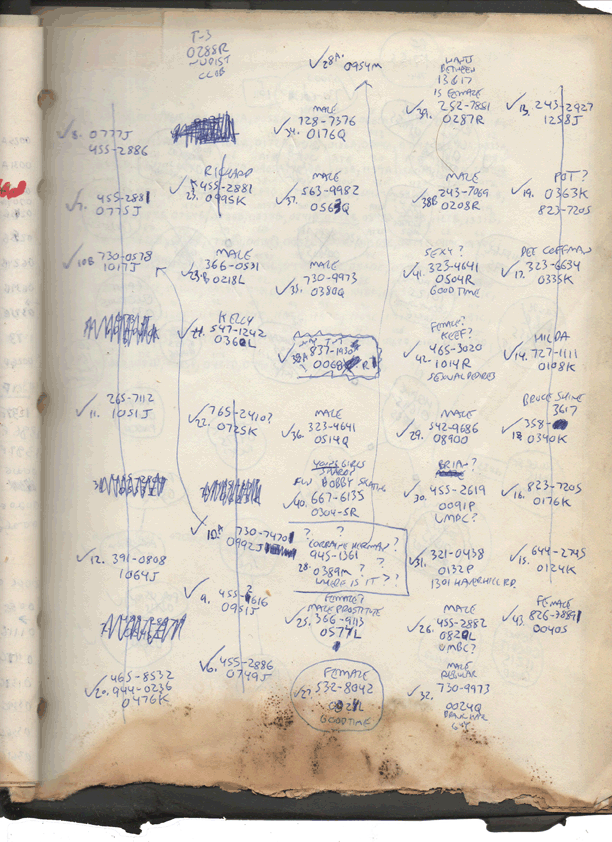 T-3
0288R
NUDIST
CLUB
✓28A. 0954M
WANTS
BETWEEN
13&17
IS FEMALE
✓39. 252-7851
0287R
✓13. 243-2927
1258J
✓8. 0777J
455-2886
MALE
728-7376
✓34. 0176Q
RICHARD
455-2881
✓23. 0995K
MALE
563-9982
✓37. 0563Q
MALE
243-7069
✓38B 0208R
POT?
✓19. 0363K
823-7205
455-2881
✓7. 0775J
730-0578
✓10B 1017J
MALE
366-0531
✓23B 0218L
MALE
730-9973
✓35. 0380Q
SEXY?
✓41. 323-4641
0504R
GOODTIME
DEE COFFMAN
✓17. 323-6634
0335K
KELLY
✓24. 547-1242
0360L
✓38A 837-1930
0068 R
FEMALE?
KEEF?
✓42. 465-3020
1014R
SEXUAL DESIRES
HILDA
✓14. 727-1111
0108K
265-7112
✓11. 1051J
765-2410?
✓22. 0725K
MALE
323-4641
✓36. 0514Q
MALE
✓29. 542-9686
0890O
BRUCE SHINE
3617
✓358-
18. 0340K
YOUNG GIRLS
SHARDY
FLW BOBBY
✓40. 667-6135
0304-SR
BRIAN?
✓30. 455-2619
0091P
UMBC?
✓16. 823-7205
0176K
✓10A 730-7470
0992J
? ?
"LORRAINE HERMAN"?
945-1361 ?
28. 0389M ? ?
WHERE IS IT??
✓12. 391-0808
1064J
✓31. 321-0438
0132P
1301 HAVERHILL RD.
✓15. 644-2745
0124K
✓9. 455-?616
0951J
FEMALE?
MALE PROSTITUTE
✓25. 366-9113
0577L
MALE
✓26. 455-2882
0820L
UMBC?
FEMALE
✓43. 826-7889
0040S
✓6. 455-2886
0749J
465-8532
✓20. 944-0236
0476K
FEMALE
✓27. 532-8042
GOODTIME
MALE
REGULAR
✓32. 730-9973
0024Q